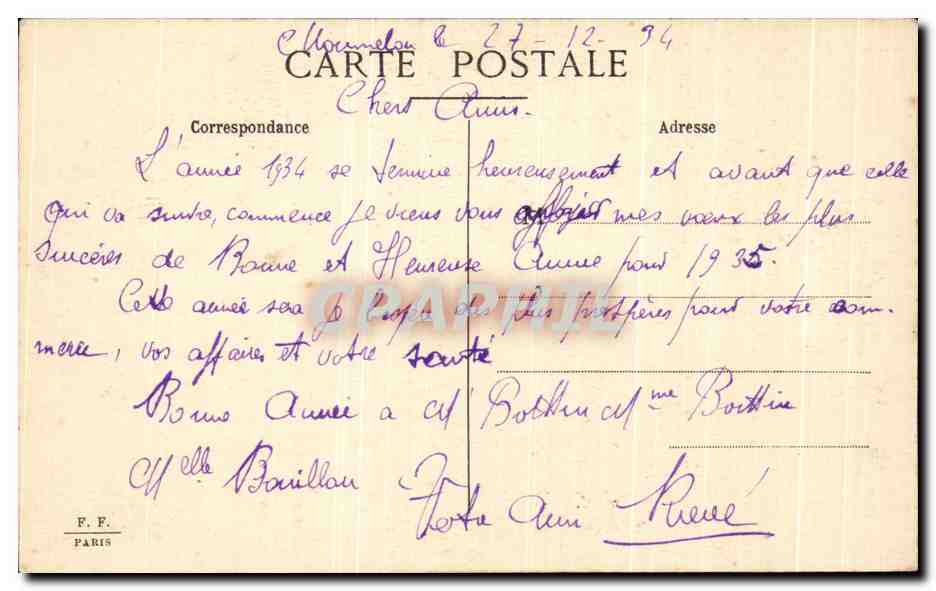 le 27-12-34
CARTE POSTALE
Chers Amis.
Correspondance
Adresse
L'année 1934 se termine heureusement et avant que celle
qui va suivre, commence je viens vous mes vœux les plus
sincères de Bonne et Heureuse Année pour 1935.
Cette année sera je l'espère des plus prospères pour votre com-
merce, vos affaires et votre santé
Bonne Année a Mr Bottin Mme Bottin
Melle Bouillon
Votre Ami René
F. F.
PARIS
CPAPHIL